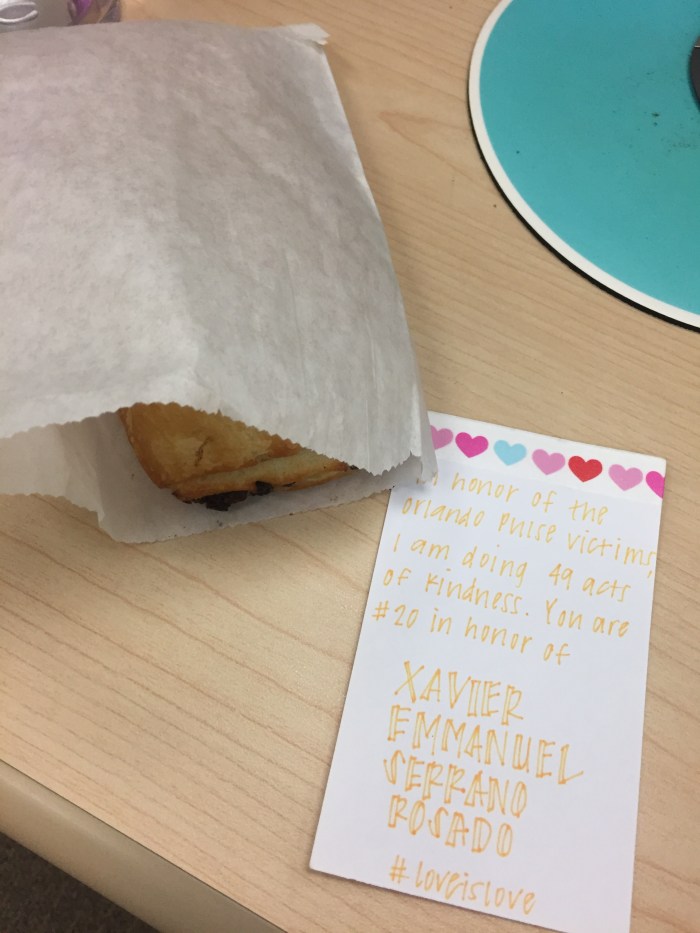 In honor of the
Orlando Pulse victims,
I am doing 49 acts
of kindness. You are
#20 in honor of
XAVIER
EMMANUEL
SERRANO
ROSADO
#loveislove